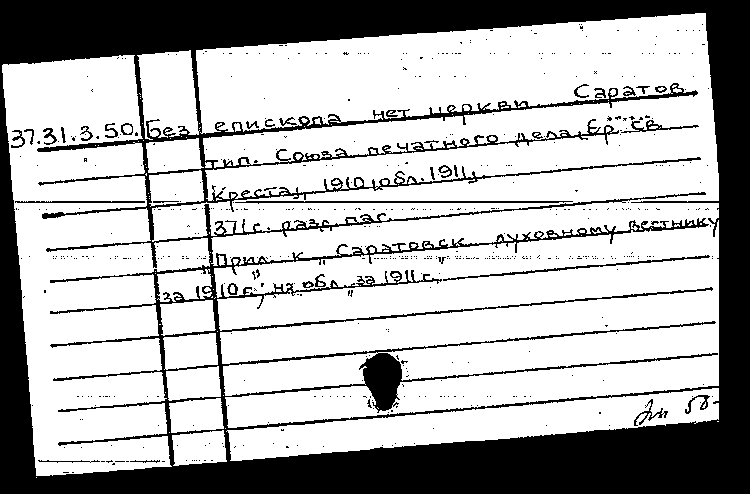 37.31.3.50. Без епископа нет церкви. Саратов
тип. Союза печатного дела, Бр. Св.
Креста, 1910, обл. 1911,.
371 с. разд. паг.
„Прил. к „Саратовск. духовному вестнику
за 1910 г."; на обл. „за 1911 г."
50-